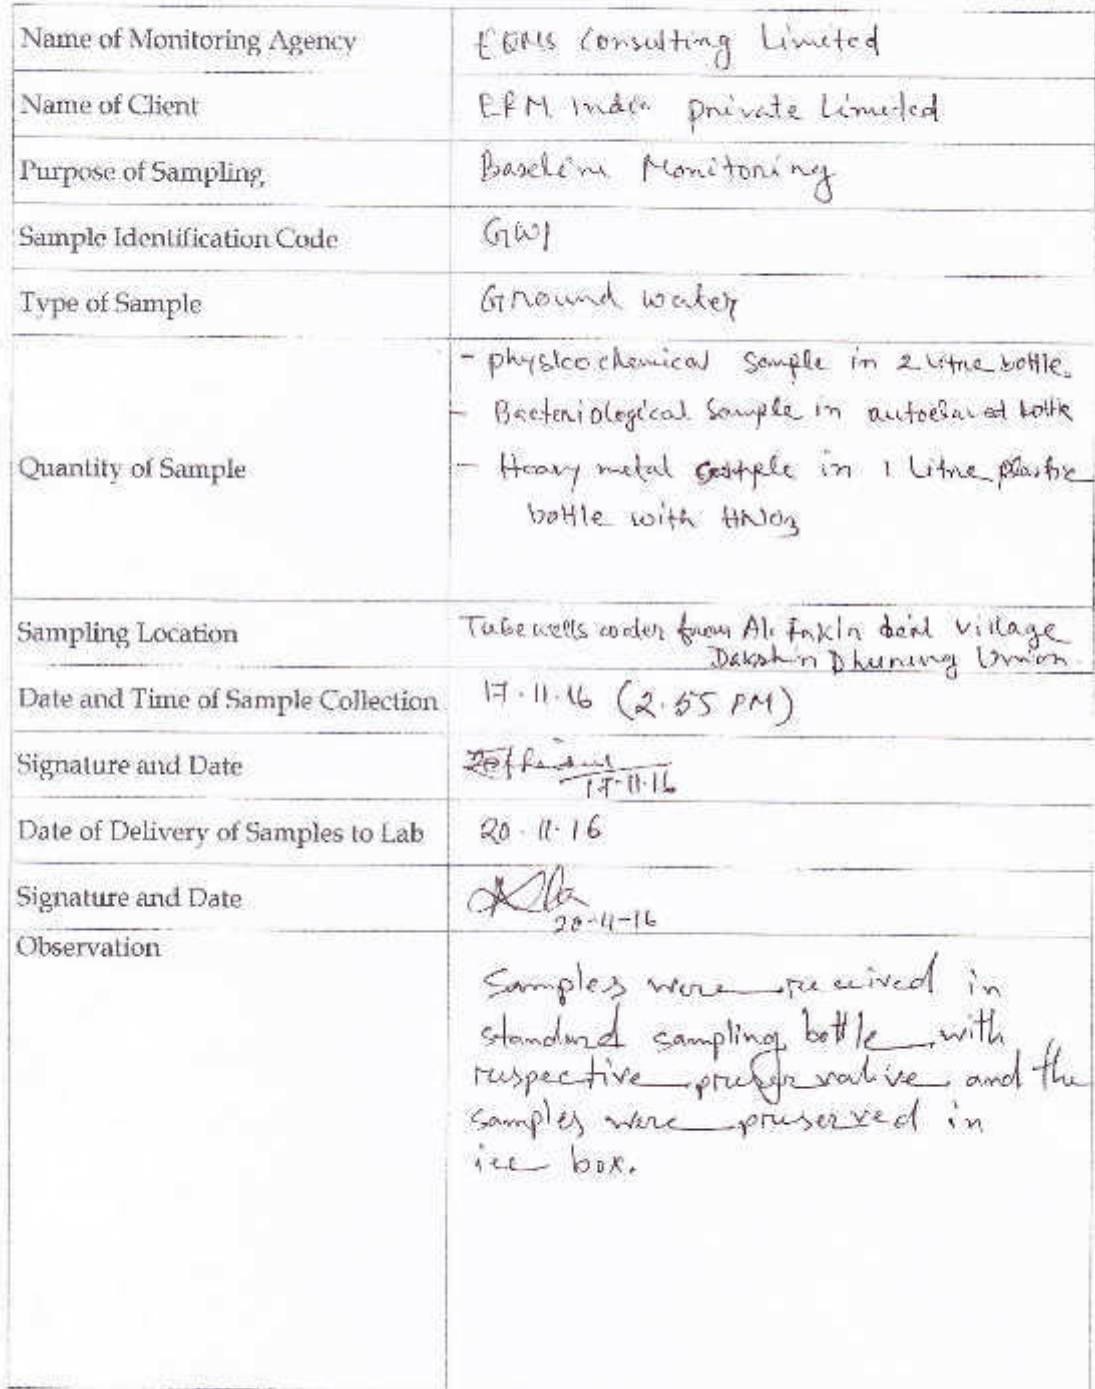 Name of Monitoring Agency EQMS Consulting Limited
Name of Client ERM India private Limited
Purpose of Sampling Baseline Monitoring
Sample Identification Code GW1
Type of Sample Ground water
Quantity of Sample
- physicochemical sample in 2 Litre bottle.
- Bacteriological Sample in autoclaved bottle
- Heavy metal sample in 1 Litre plastic
bottle with HNO3
Sampling Location Tubewells water from Ali Fakir deil village
Dakshin Dhurung Union.
Date and Time of Sample Collection 17.11.16 (2.55 PM)
Signature and Date 17.11.16
Date of Delivery of Samples to Lab 20.11.16
Signature and Date 20-11-16
Observation
Samples were received in
standard sampling bottle with
respective preservative and the
samples were preserved in
ice box.